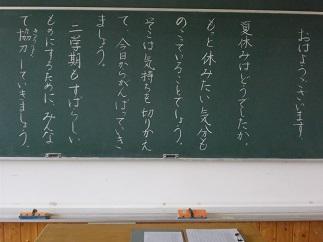 おはようございます。
夏休みはどうでしたか。
もっと休みたい気分も
のこっていることでしょう。
そこは気持ちを切りかえ
て、今日からがんばっていき
ましょう。
二学期もすばらしい
ものにするために、みんな
で協力していきましょう。